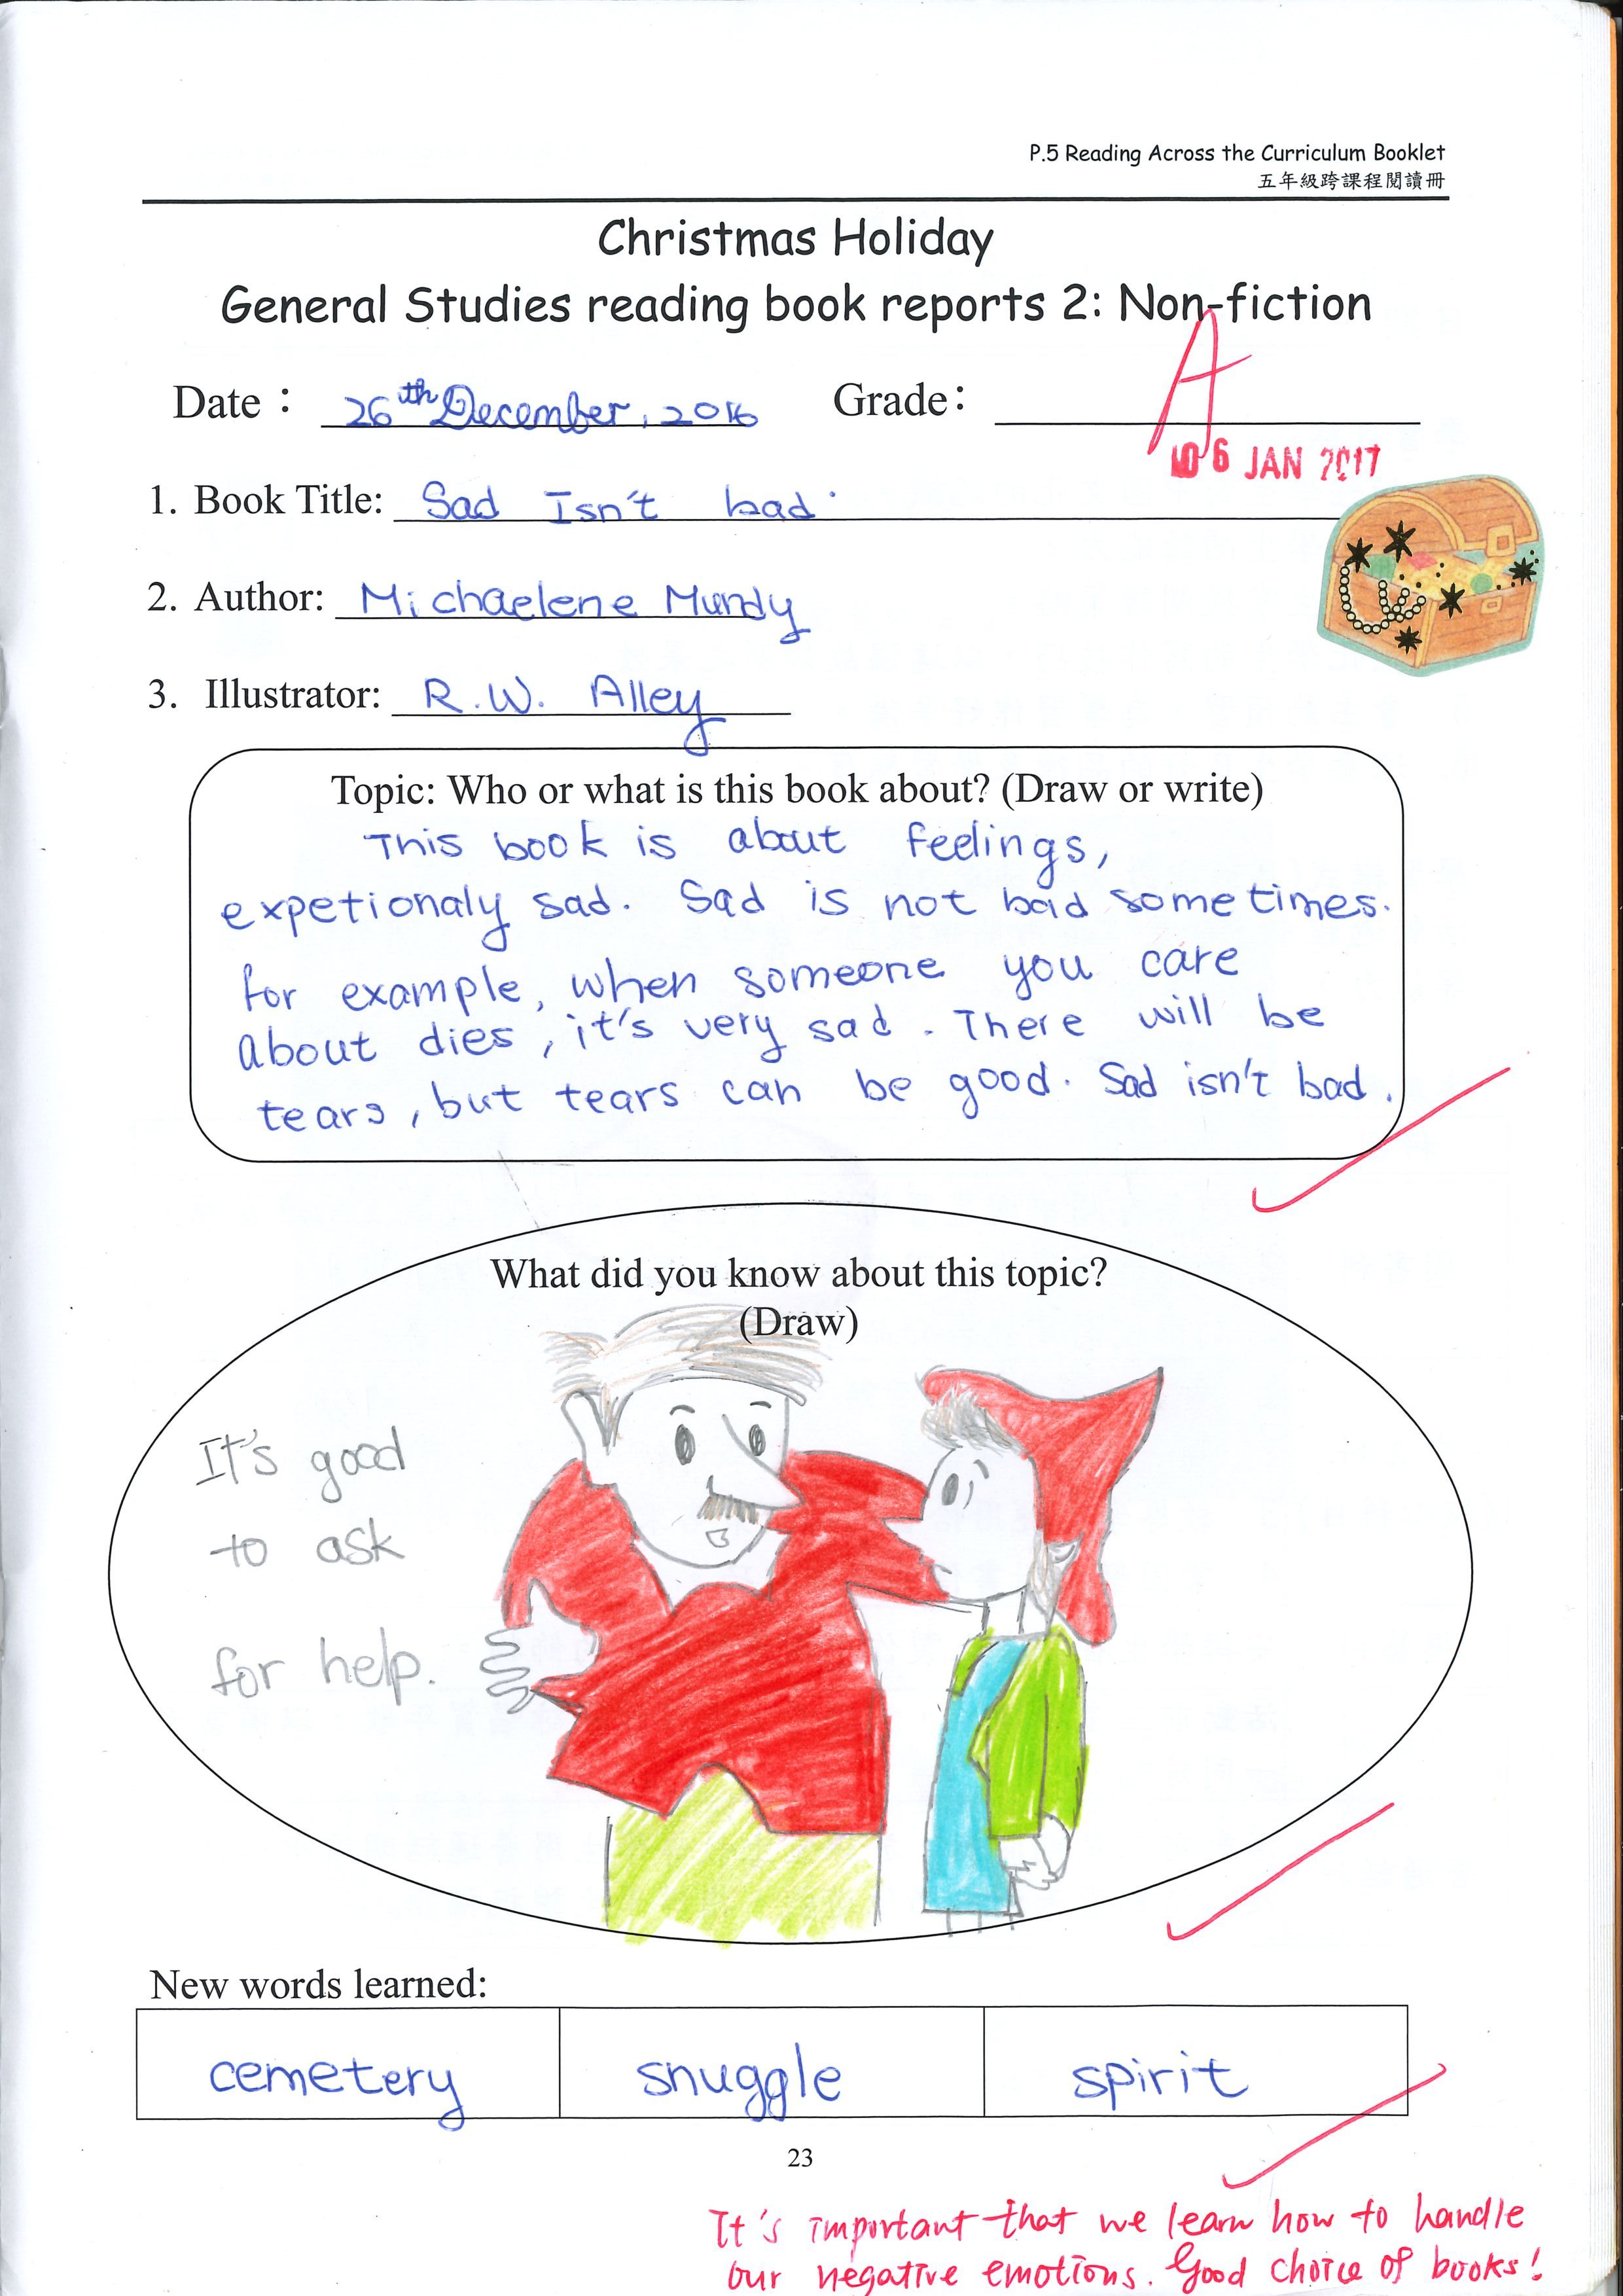 P.5 Reading Across the Curriculum Booklet
五年級跨課程閱讀冊
Christmas Holiday
General Studies reading book reports 2: Non-fiction
Date : 26th December, 2016 Grade: A
06 JAN 2017
1. Book Title: Sad Isn't bad.
2. Author: Michaelene Mundy
3. Illustrator: R.W. Alley
Topic: Who or what is this book about? (Draw or write)
This book is about feelings,
expetionaly sad. Sad is not bad sometimes.
for example, when someone you care
about dies, it's very sad. There will be
tears, but tears can be good. Sad isn't bad.
What did you know about this topic?
(Draw)
It's good
to ask
for help.
New words learned:
cemetery snuggle spirit
23
It's important that we learn how to handle
our negative emotions. Good choice of books!